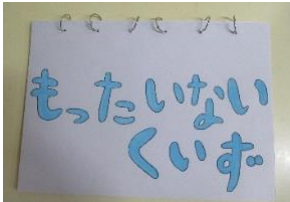 もったいない
くいず